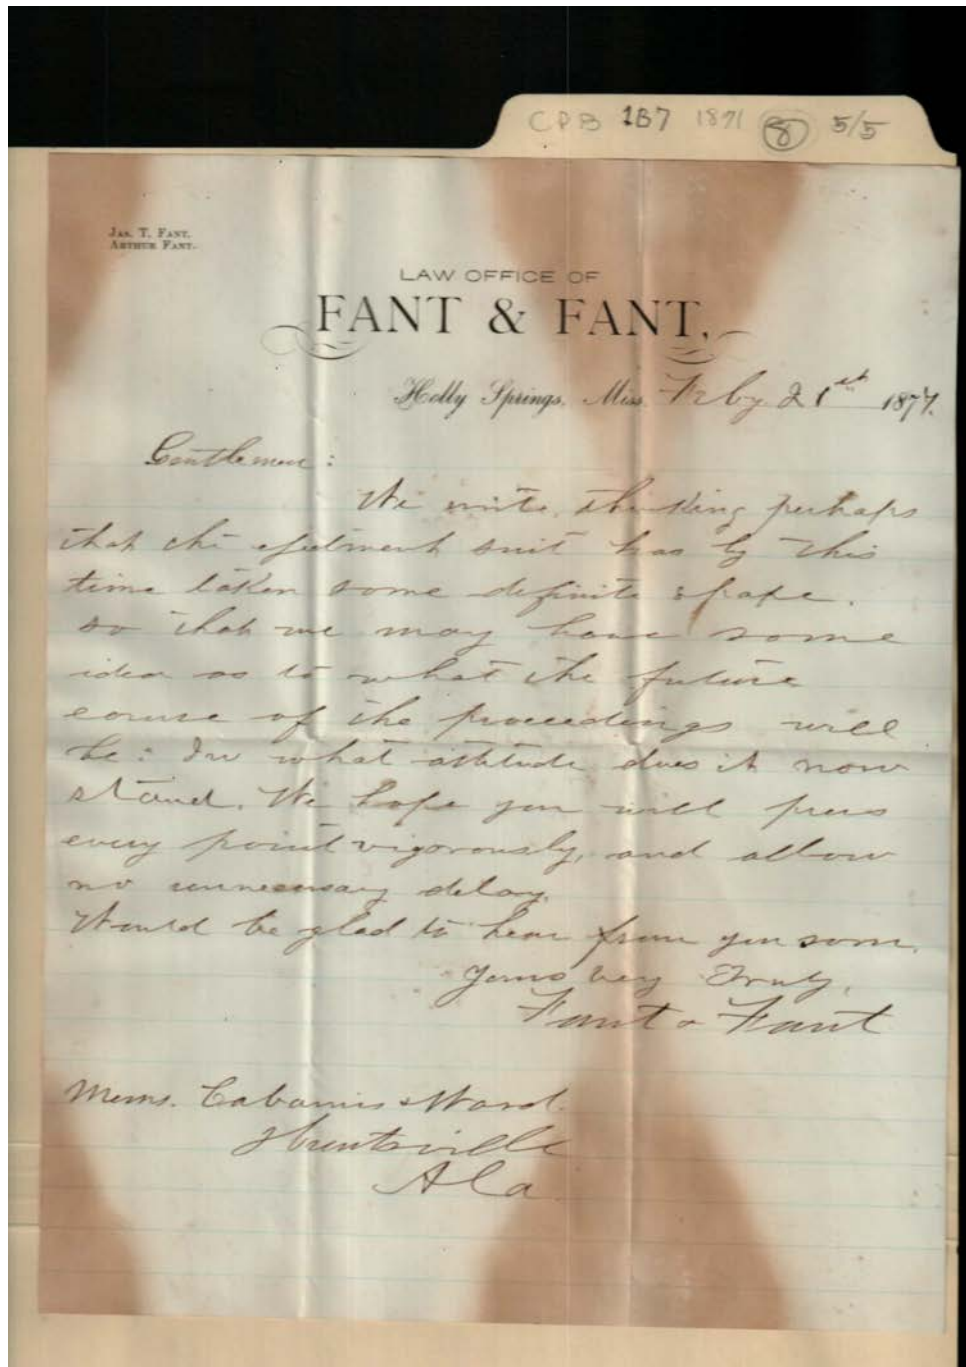 CPB 1B7 1871 8 5/5
JAS. T. FANT.
ARTHUR FANT.
LAW OFFICE OF
FANT & FANT,
Holly Springs, Miss. Feby. 21st 1877.
Gentlemen:
We write, thinking perhaps
that the ejectment suit has by this
time taken some definite shape.
so that we may have some
idea as to what the future
course of the proceedings will
be: In what attitude does it now
stand. We hope you will press
every point vigorously, and allow
no unnecessary delay.
Would be glad to hear from you soon.
Yours very Truly,
Fant & Fant
Messrs. Cabaniss & Ward.
Huntsville
Ala